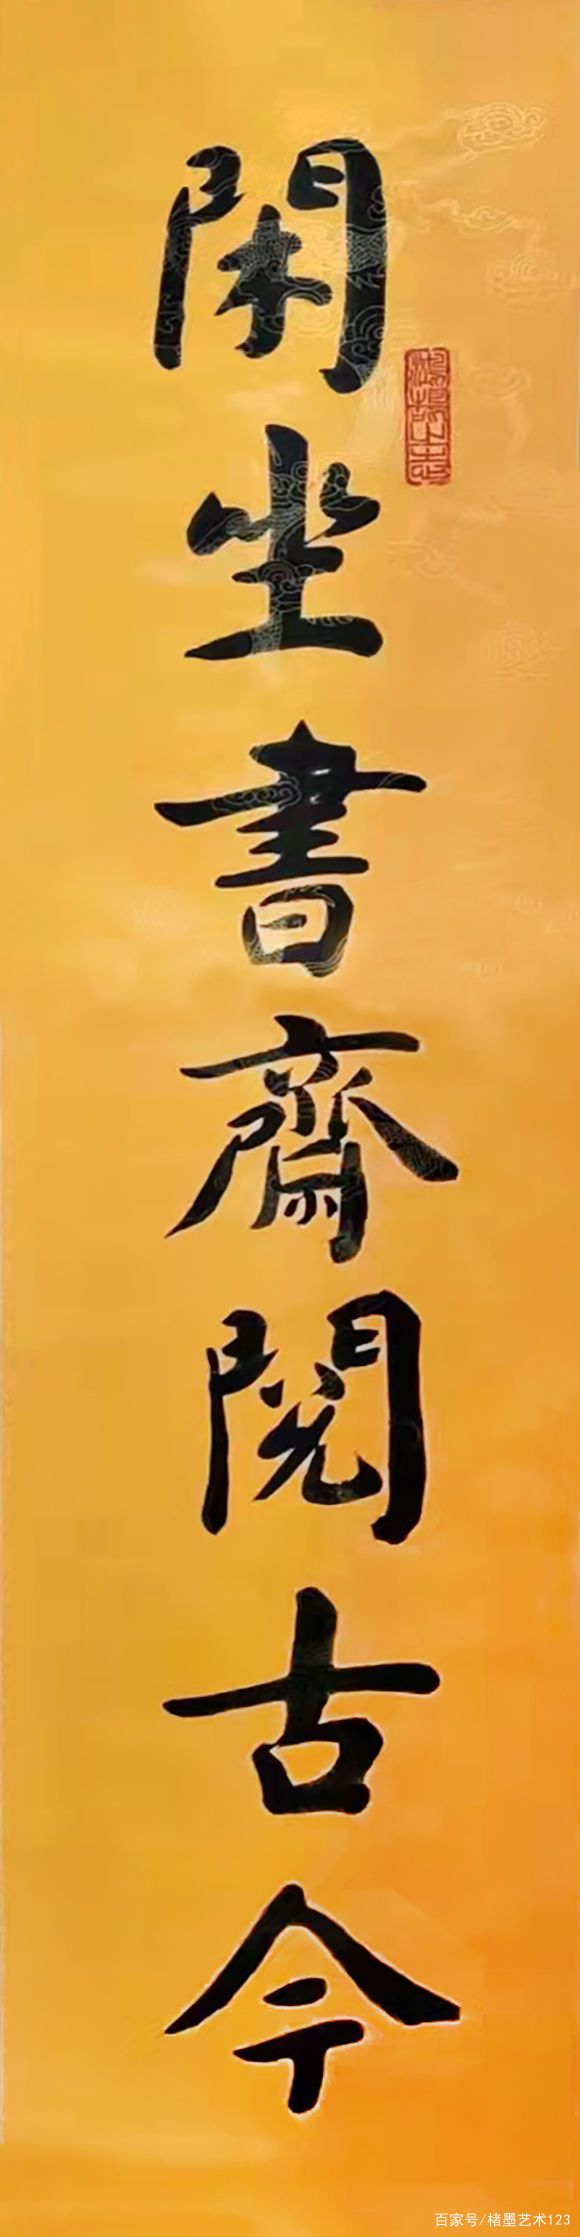 閑坐書齋閱古今
百家号/楮墨艺术123